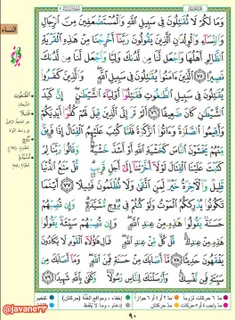 النساء
وَمَا لَكُمْ لَا تُقَـٰتِلُونَ فِى سَبِيلِ ٱللَّهِ وَٱلْمُسْتَضْعَفِينَ مِنَ ٱلرِّجَالِ
وَٱلنِّسَآءِ وَٱلْوِلْدَٰنِ ٱلَّذِينَ يَقُولُونَ رَبَّنَآ أَخْرِجْنَا مِنْ هَـٰذِهِ ٱلْقَرْيَةِ
ٱلظَّالِمِ أَهْلُهَا وَٱجْعَل لَّنَا مِن لَّدُنكَ وَلِيًّا وَٱجْعَل لَّنَا مِن لَّدُنكَ
نَصِيرًا ٧٥ ٱلَّذِينَ ءَامَنُوا۟ يُقَـٰتِلُونَ فِى سَبِيلِ ٱللَّهِ وَٱلَّذِينَ كَفَرُوا۟
يُقَـٰتِلُونَ فِى سَبِيلِ ٱلطَّـٰغُوتِ فَقَـٰتِلُوٓا۟ أَوْلِيَآءَ ٱلشَّيْطَـٰنِ إِنَّ كَيْدَ
ٱلشَّيْطَـٰنِ كَانَ ضَعِيفًا ٧٦ أَلَمْ تَرَ إِلَى ٱلَّذِينَ قِيلَ لَهُمْ كُفُّوٓا۟ أَيْدِيَكُمْ
وَأَقِيمُوا۟ ٱلصَّلَوٰةَ وَءَاتُوا۟ ٱلزَّكَوٰةَ فَلَمَّا كُتِبَ عَلَيْهِمُ ٱلْقِتَالُ إِذَا فَرِيقٌ
مِّنْهُمْ يَخْشَوْنَ ٱلنَّاسَ كَخَشْيَةِ ٱللَّهِ أَوْ أَشَدَّ خَشْيَةً وَقَالُوا۟ رَبَّنَا لِمَ
كَتَبْتَ عَلَيْنَا ٱلْقِتَالَ لَوْلَآ أَخَّرْتَنَآ إِلَىٰٓ أَجَلٍ قَرِيبٍ قُلْ مَتَـٰعُ ٱلدُّنْيَا
قَلِيلٌ وَٱلْـَٔاخِرَةُ خَيْرٌ لِّمَنِ ٱتَّقَىٰ وَلَا تُظْلَمُونَ فَتِيلًا ٧٧ أَيْنَمَا
تَكُونُوا۟ يُدْرِككُّمُ ٱلْمَوْتُ وَلَوْ كُنتُمْ فِى بُرُوجٍ مُّشَيَّدَةٍ وَإِن تُصِبْهُمْ
حَسَنَةٌ يَقُولُوا۟ هَـٰذِهِۦ مِنْ عِندِ ٱللَّهِ وَإِن تُصِبْهُمْ سَيِّئَةٌ يَقُولُوا۟
هَـٰذِهِۦ مِنْ عِندِكَ قُلْ كُلٌّ مِّنْ عِندِ ٱللَّهِ فَمَالِ هَـٰٓؤُلَآءِ ٱلْقَوْمِ لَا يَكَادُونَ
يَفْقَهُونَ حَدِيثًا ٧٨ مَّآ أَصَابَكَ مِنْ حَسَنَةٍ فَمِنَ ٱللَّهِ وَمَآ أَصَابَكَ مِن
سَيِّئَةٍ فَمِن نَّفْسِكَ وَأَرْسَلْنَـٰكَ لِلنَّاسِ رَسُولًا وَكَفَىٰ بِٱللَّهِ شَهِيدًا ٧٩
٩٠
@javanetv